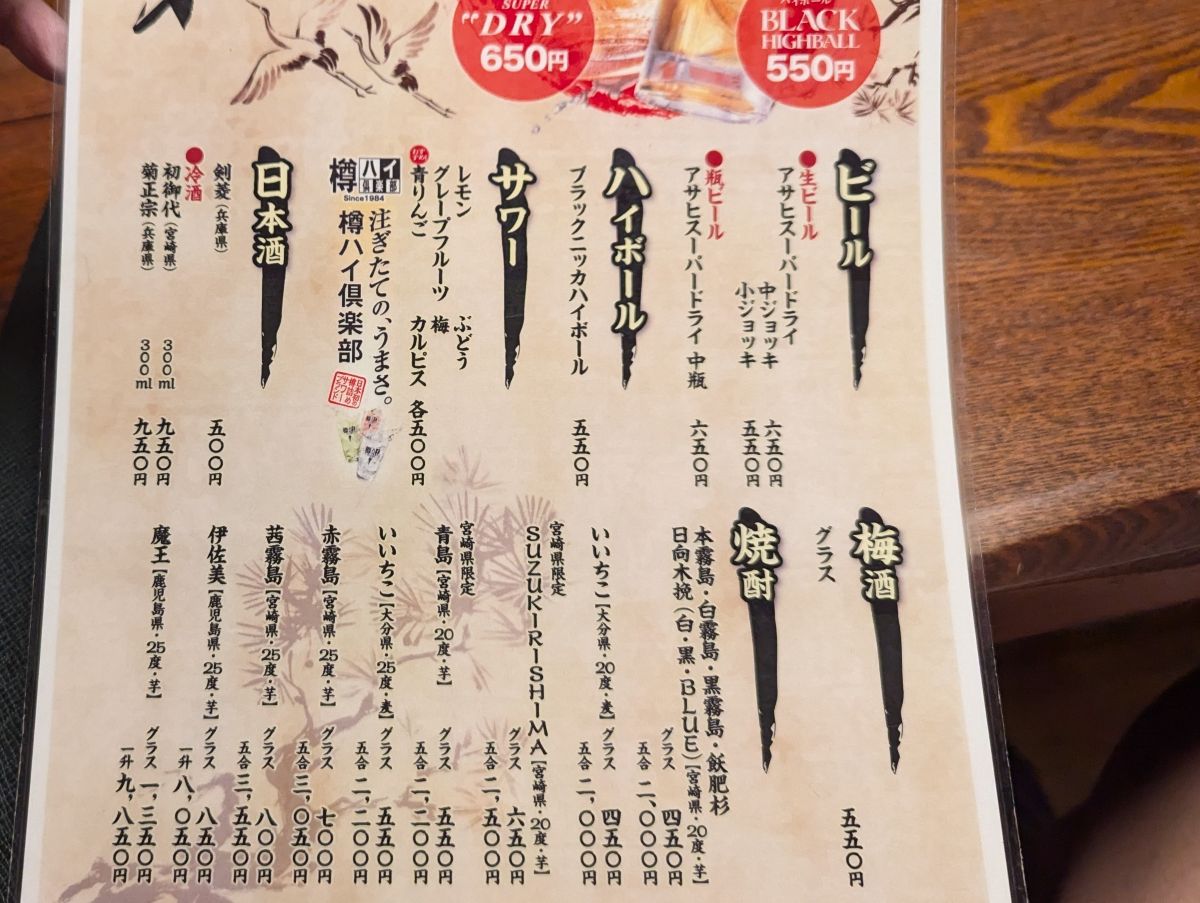 SUPER
"DRY"
650円
ハイボール
BLACK
HIGHBALL
550円
ビール
●生ビール
アサヒスーパードライ
中ジョッキ 六五〇円
小ジョッキ 五五〇円
●瓶ビール
アサヒスーパードライ 中瓶 六五〇円
ハイボール
ブラックニッカハイボール 五五〇円
サワー
レモン ぶどう
グレープフルーツ 梅
おすすめ
青りんご カルピス 各五〇〇円
樽ハイ倶楽部
Since1984
注ぎたての、うまさ。
樽ハイ倶楽部
日本初の
樽詰め
サワー
ブランド
日本酒
剣菱(兵庫県) 五〇〇円
●冷酒
初御代(宮崎県) 300ml 九五〇円
菊正宗(兵庫県) 300ml 九五〇円
梅酒
グラス 五五〇円
焼酎
本霧島・白霧島・黒霧島・飫肥杉
日向木挽(白・黒・BLUE)【宮崎県・20度・芋】
グラス 四五〇円
五合 二、〇〇〇円
いいちこ【大分県・20度・麦】
グラス 四五〇円
五合 二、〇〇〇円
宮崎県限定
SUZUKIRISHIMA【宮崎県・20度・芋】
グラス 六五〇円
五合 二、五〇〇円
宮崎県限定
青島【宮崎県・20度・芋】
グラス 五五〇円
五合 二、二〇〇円
いいちこ【大分県・25度・麦】
グラス 五五〇円
五合 二、二〇〇円
赤霧島【宮崎県・25度・芋】
グラス 七〇〇円
五合 三、〇五〇円
茜霧島【宮崎県・25度・芋】
グラス 八〇〇円
五合 三、五五〇円
伊佐美【鹿児島県・25度・芋】
グラス 八五〇円
一升 八、〇五〇円
魔王【鹿児島県・25度・芋】
グラス 一、三五〇円
一升 九、八五〇円